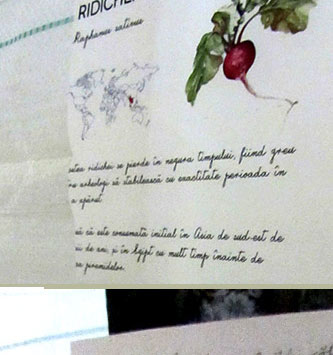 RIDICHE
Raphanus sativus
ridichei se pierde în negura timpului, fiind greu
arheologi să stabilească cu exactitate perioada în
a apărut.
că este consumată inițial în Asia de sud-est de
de ani, și în Egipt cu mult timp înainte de
piramidelor.